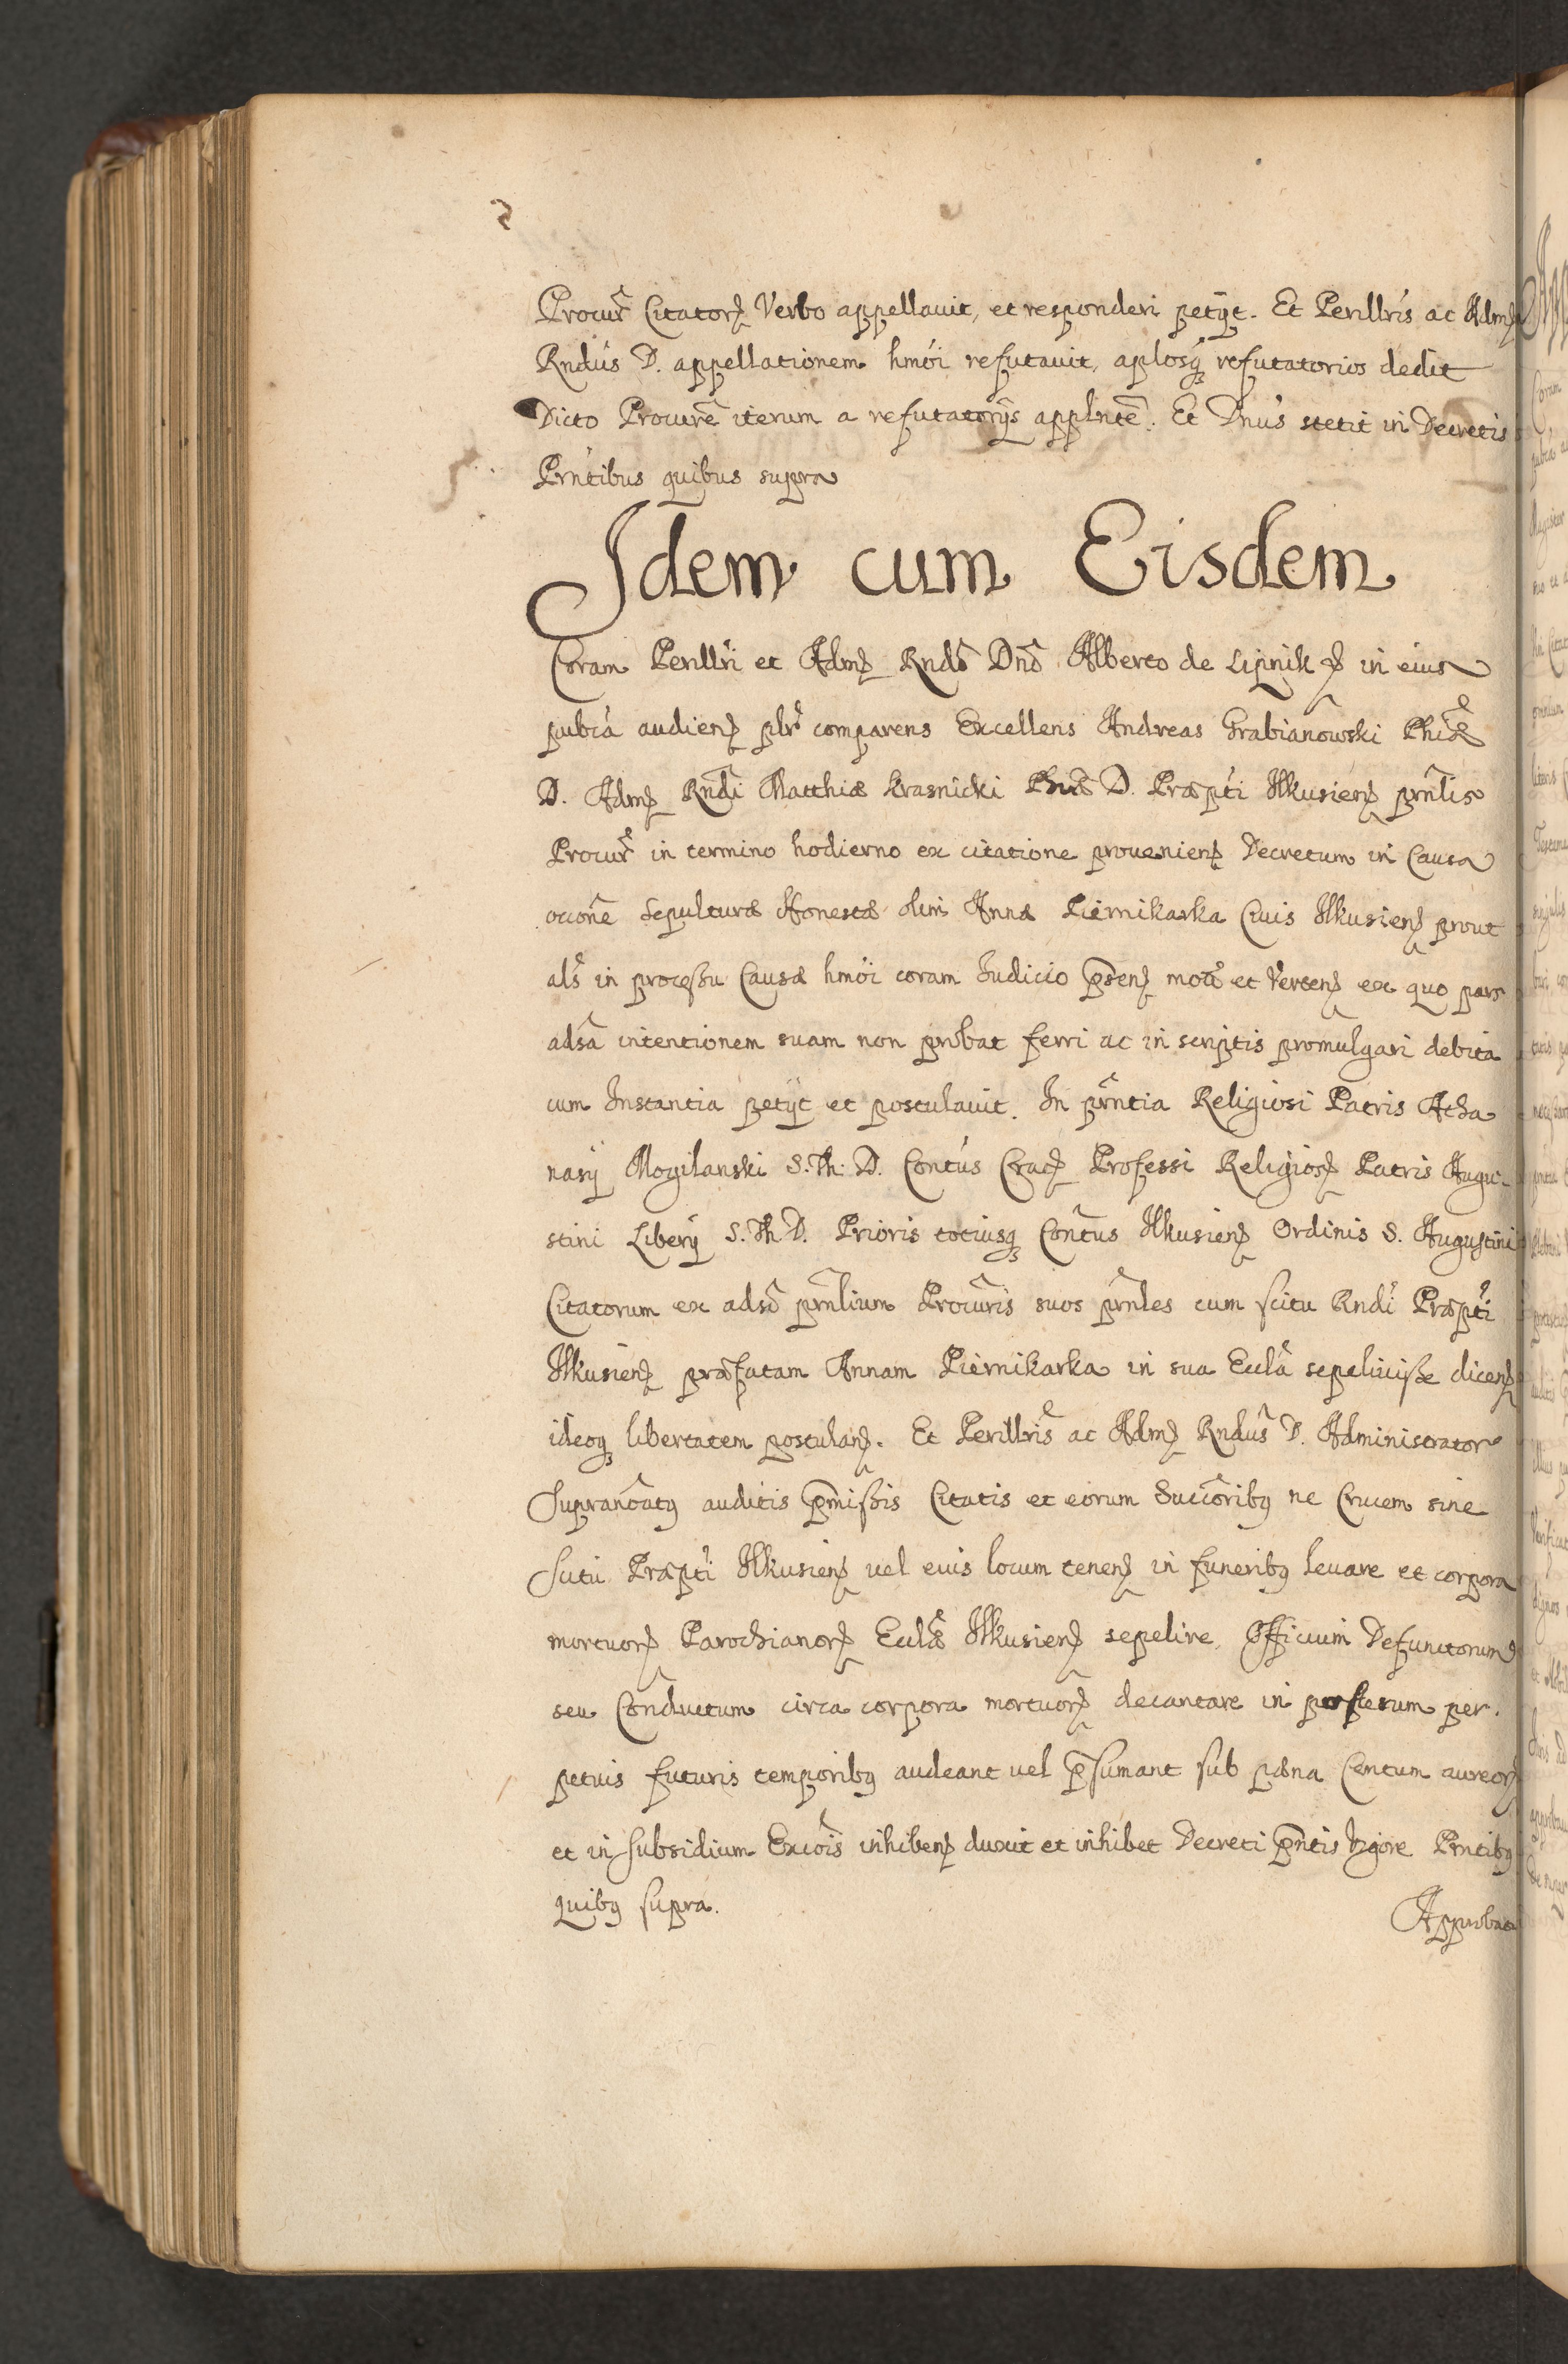 Procur Citator Verbo appellauit, et responderi petÿt. Et Perillris ac Adm
Rndus D. appellationem hmoi refutauit, aplosq refutatorios dedit
Dicto Procure iterum a refutatorÿs applnte. Et Dnus stetit in Decretis
Prntibus quibus supra
Idem cum Eisdem
Coram Perillri et Adm Rndo Dno Alberto de Lipnik in eius
publca audien plr comparens Excellens Andreas Grabianowski Phiæ
D. Adm Rndi Matthiæ Krasnicki Phiæ D. Præpti Ilkusien prnlis
Procur in termino hodierno ex citatione prouenien Decretum in Causa
occone Sepulturæ Honestæ olim Annæ Piernikarka Ciuis Ilkusien prout
als in processu Causæ hmoi coram Iudicio psen mota et verten ex quo pars
adsa intentionem suam non probat ferri ac in scriptis promulgari debita
cum Instantia petÿt et postulauit. In prntia Religiosi Patris Atha
nasÿ Mogilanski S. Th. D. Contus Crac Professi Religios Patris Augu-
stini Liberÿ S. Th D. Prioris totiusq Contus Ilkusien Ordinis S. Augustini
Citatorum ex adso prnlium Procuris suos prnles cum scitu Rndi Præpti
Ilkusien præfatam Annam Piernikarka in sua Eccla sepeliuisse dicen
ideoq libertatem postulan. Et Perillris ac Adm Rndus D. Administrator
Suprancatg auditis pmissis Citatis et eorum Succoribg ne Crucem sine
Scitu Præpti Ilkusien uel euis locum tenen in funeribg leuare et corpora
mortuor Parochianor Ecclæ Ilkusien sepelire, Officium Defunctorum
seu Conductum circa corpora mortuor decantare in posterum per.
petuis futuris temporibg audeant uel psumant sub pæna Centum aureor
et in subsidium Excois inhiben duxit et inhibet Decreti pntis Vigore Prntibg
quibg supra.
Approbat